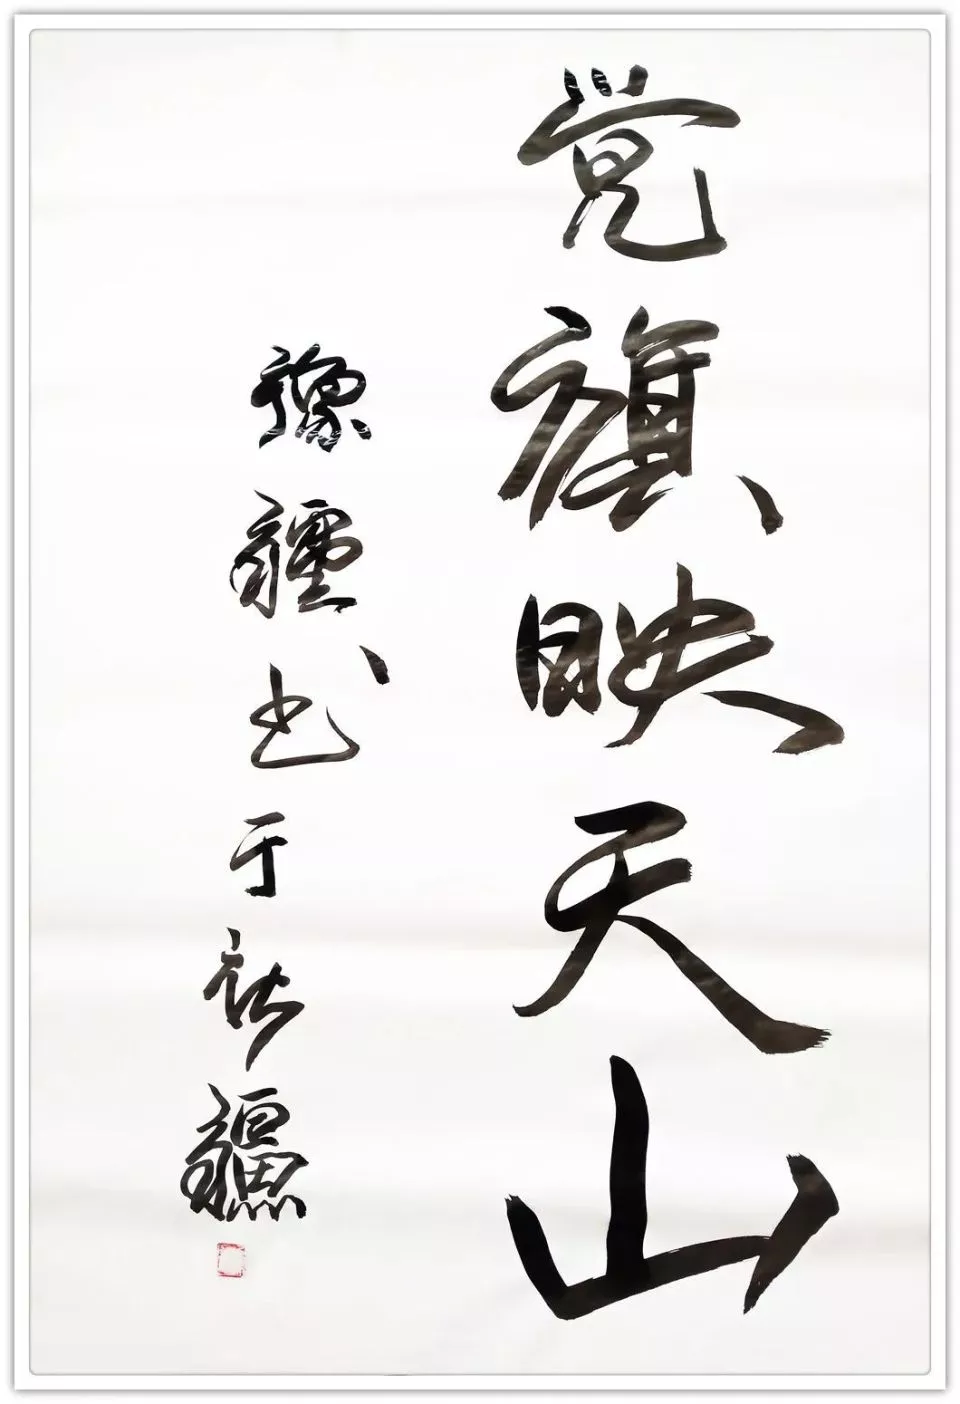 党旗映天山
豫疆书于新疆